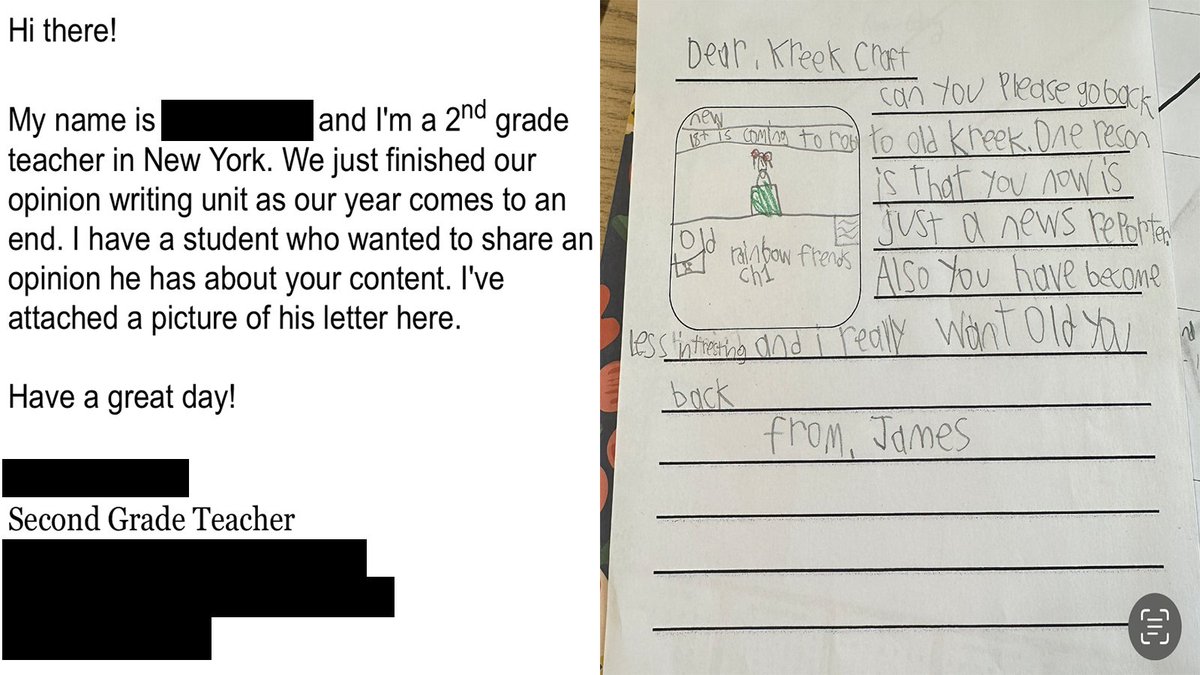 Hi there!
My name is and I'm a 2nd grade
teacher in New York. We just finished our
opinion writing unit as our year comes to an
end. I have a student who wanted to share an
opinion he has about your content. I've
attached a picture of his letter here.
Have a great day!
Second Grade Teacher
Dear, Kreek Craft
can you Please go back
to old Kreek. One reson
is that you now is
just a news reporter.
Also you have become
less intresting and i really want old you
back
from, James
new
is coming to rob
old
rainbow frends
ch1